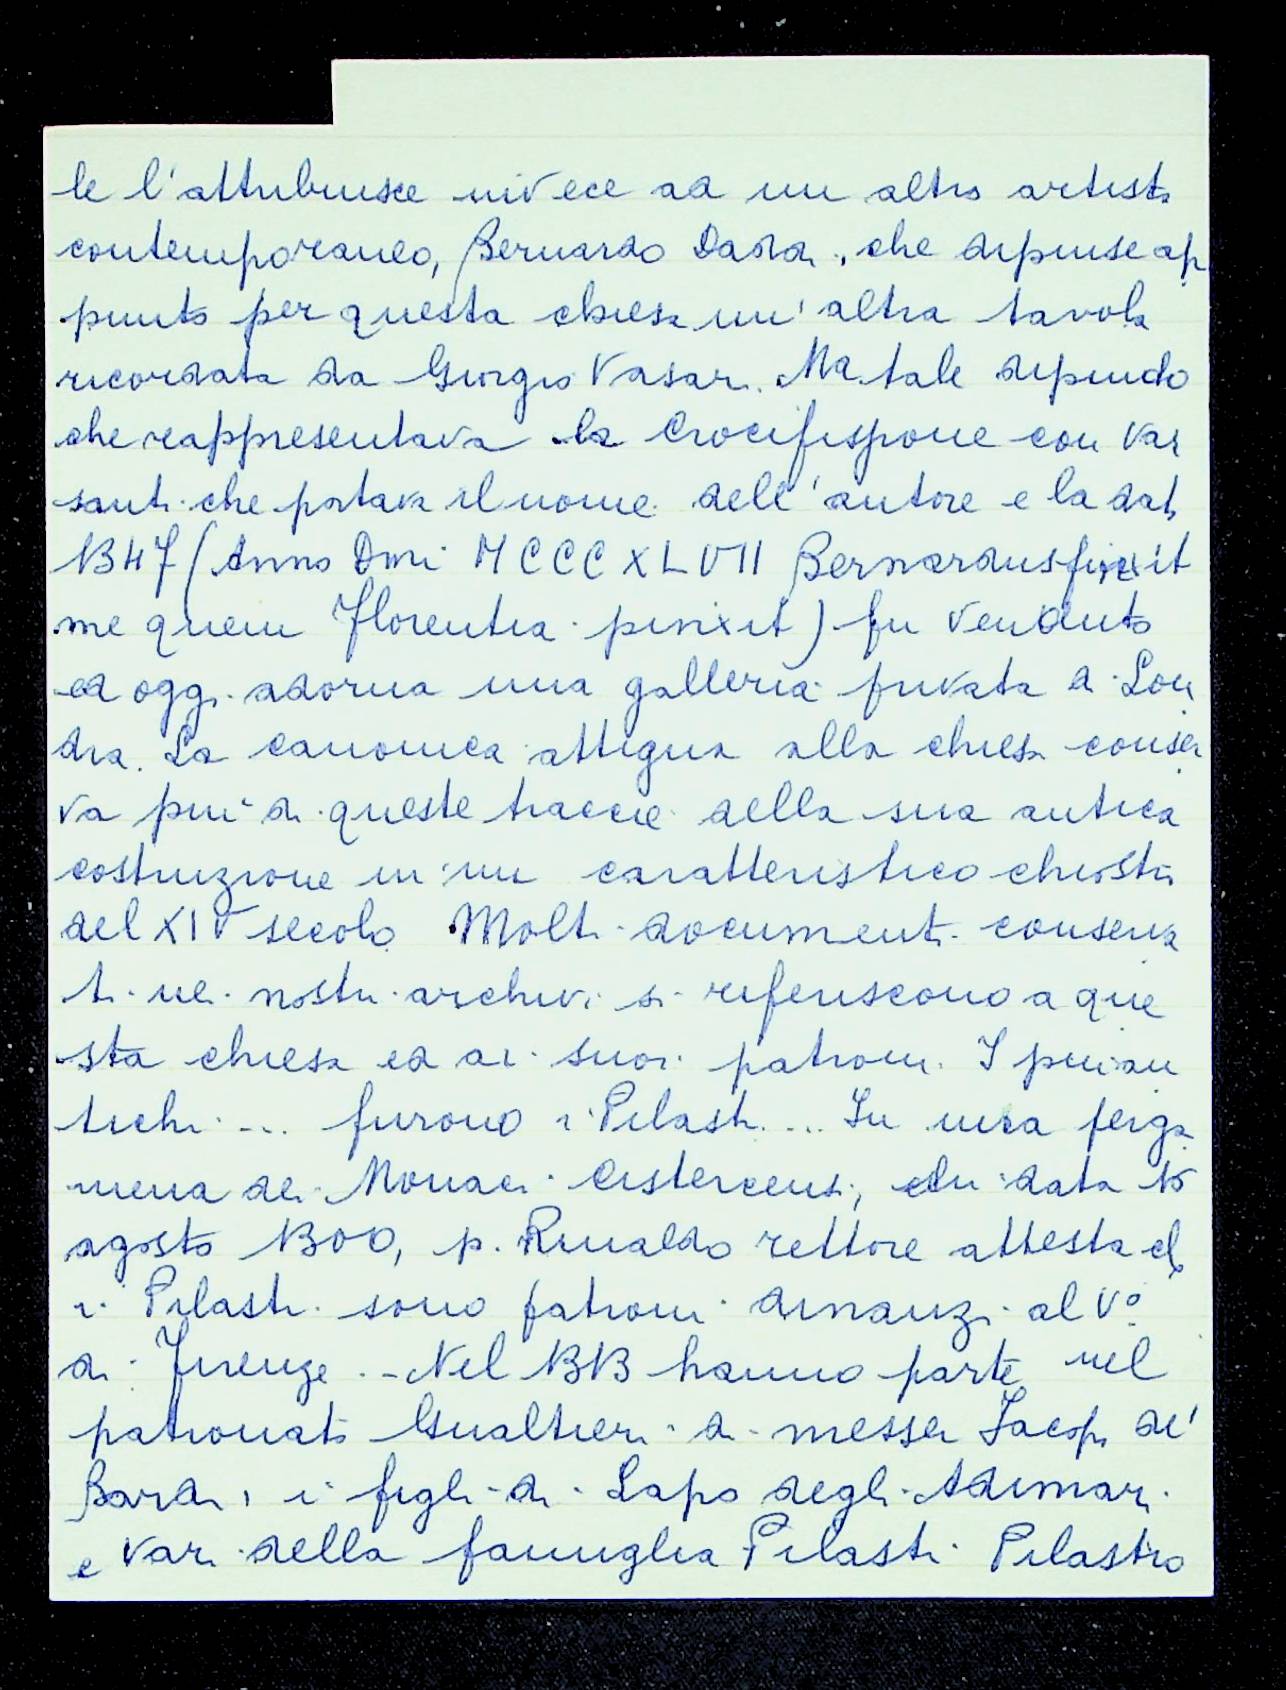 le l'attribuisce invece ad un altro artista
contemporaneo, Bernardo Daddi, che dipinse ap
punto per questa chiesa un' altra tavola
ricordata da Giorgio Vasari. Ma tale dipindo
che rappresentava la Crocifissione con vari
santi che portava il nome dell'autore e la data
1347 (Anno Dmi MCCCXLVII Bernardus finxit
me quem Florentia pinxit) fu venduto
ed oggi adorna una galleria privata di Lon
dra. La canonica attigua alla chiesa conser
va più di queste traccie della sua antica
costruzione in un caratteristico chiostro
del XIV secolo. Molti documenti conserva
ti nei nostri archivi si riferiscono a que
sta chiesa ed ai suoi patroni. I più an
tichi ... furono i Pilastri ... In una perga
mena dei Monaci Cistercensi, di data 15
agosto 1300, p. Rinaldo rettore attesta che
i Pilastri sono patroni dinanzi al V°
di Firenze .- Nel 1313 hanno parte nel
patronato Gualtieri di messer Jacopo de'
Bardi, i figli di Lapo degli Adimari
e vari della famiglia Pilastri. Pilastro